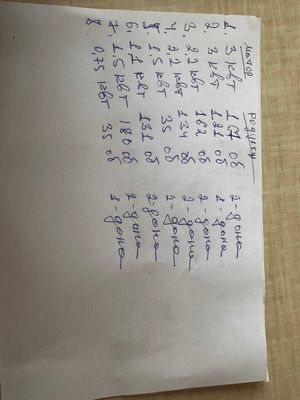 мотор редуктор
1. 3 квт об 2-дона
2. 3 квт 181 об 1-дона
3. 2,2 квт 162 об 2-дона
4. 2,2 квт 134 об 2-дона
5. 1.5 квт 35 об 2-дона
6. 1,1 квт 131 об 2-дона
7. 1.5 квт 180 об 2-дона
8. 0.75 квт 35 об 1-дона